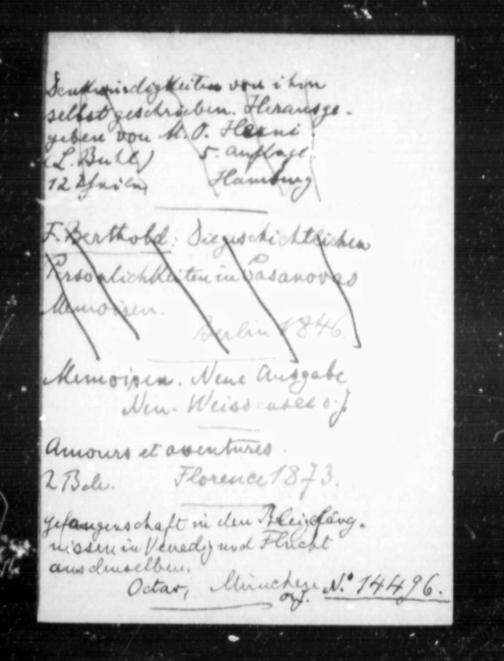 Denkwürdigkeiten von ihm
selbst geschrieben. Herausge-
geben von
(L. Buhl) 5. Auflage
12 Theile Hamburg
F. Berthold: Die geschichtlichen
Persönlichkeiten in Casanovas
Memoiren.
Berlin 1846
Memoiren. Neue Ausgabe
Neu-Weissensee o. J
Amours et aventures.
2 Bde. Florence 1873.
Gefangenschaft in den Bleigefäng-
nissen in Venedig und Flucht
aus denselben.
Octav, München
o. J. No. 14496.